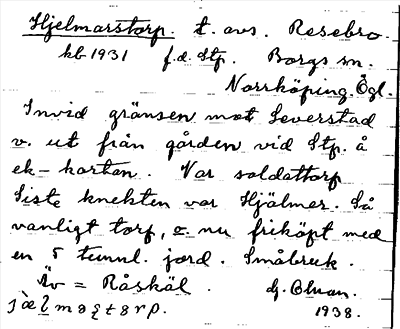 Hjelmarstorp. t. avs. Resebro.
kb 1931 f.d. Stp. Borgs sn.
Norrköping. Ögl.
Invid gränsen mot Leverstad
v. ut från gården vid Stp. å
ek-kartan. Var soldattorp
Siste knekten var Hjälmer. Så
vanligt torp, o. nu friköpt med
en 5 tunnl. jord. Småbruk.
Äv = Råskäl. dj.
1938.